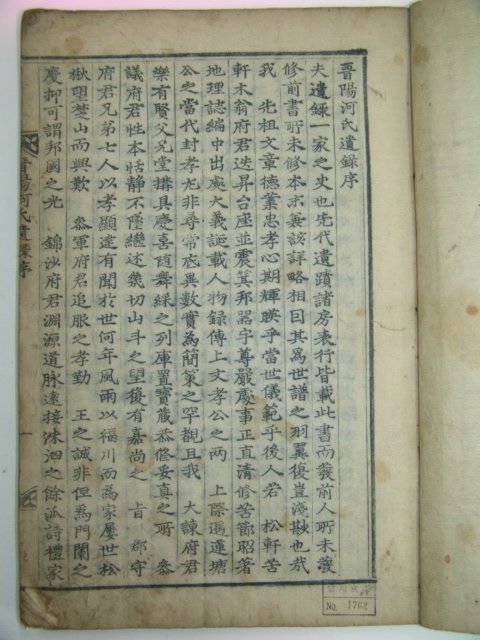 晋陽河氏遺錄序
夫遺錄一家之史也先代遺蹟諸房表行皆載此書而發前人所未發
修前書所未修本末兼該詳略相因其爲世譜之羽翼復豈淺尠也哉
我 先祖文章德業忠孝心期輝暎乎當世儀範乎後人若 松軒苦
軒木翁府君迭昇台座並震箕邦器宇尊嚴處事正直清修苦節昭著
地理誌編中出處大義誕載人物録傳上文孝公之兩 上際遇蓮塘
公之當代封孝尤非尋常底異數實為簡策之罕觀且我 大諫府君
樂有賢父兄堂搆具慶喜随舞綵之列庫置寳箴恭修妥真之所 叅
議府君性本恬静不墜継述幾切山斗之望復有嘉尚之 旨 郡守
府君兄弟七人以孝顯達有聞於世何年風雨以福川而為家屢世松
楸望楚山而興歎 叅軍府君追服之孝勤 王之誠非但為門闌之
慶抑可謂邦國之光 錦沙府君淵源道脉遠接洙泗之餘派詩禮家
晋陽河氏遺錄序
一
No. 1762